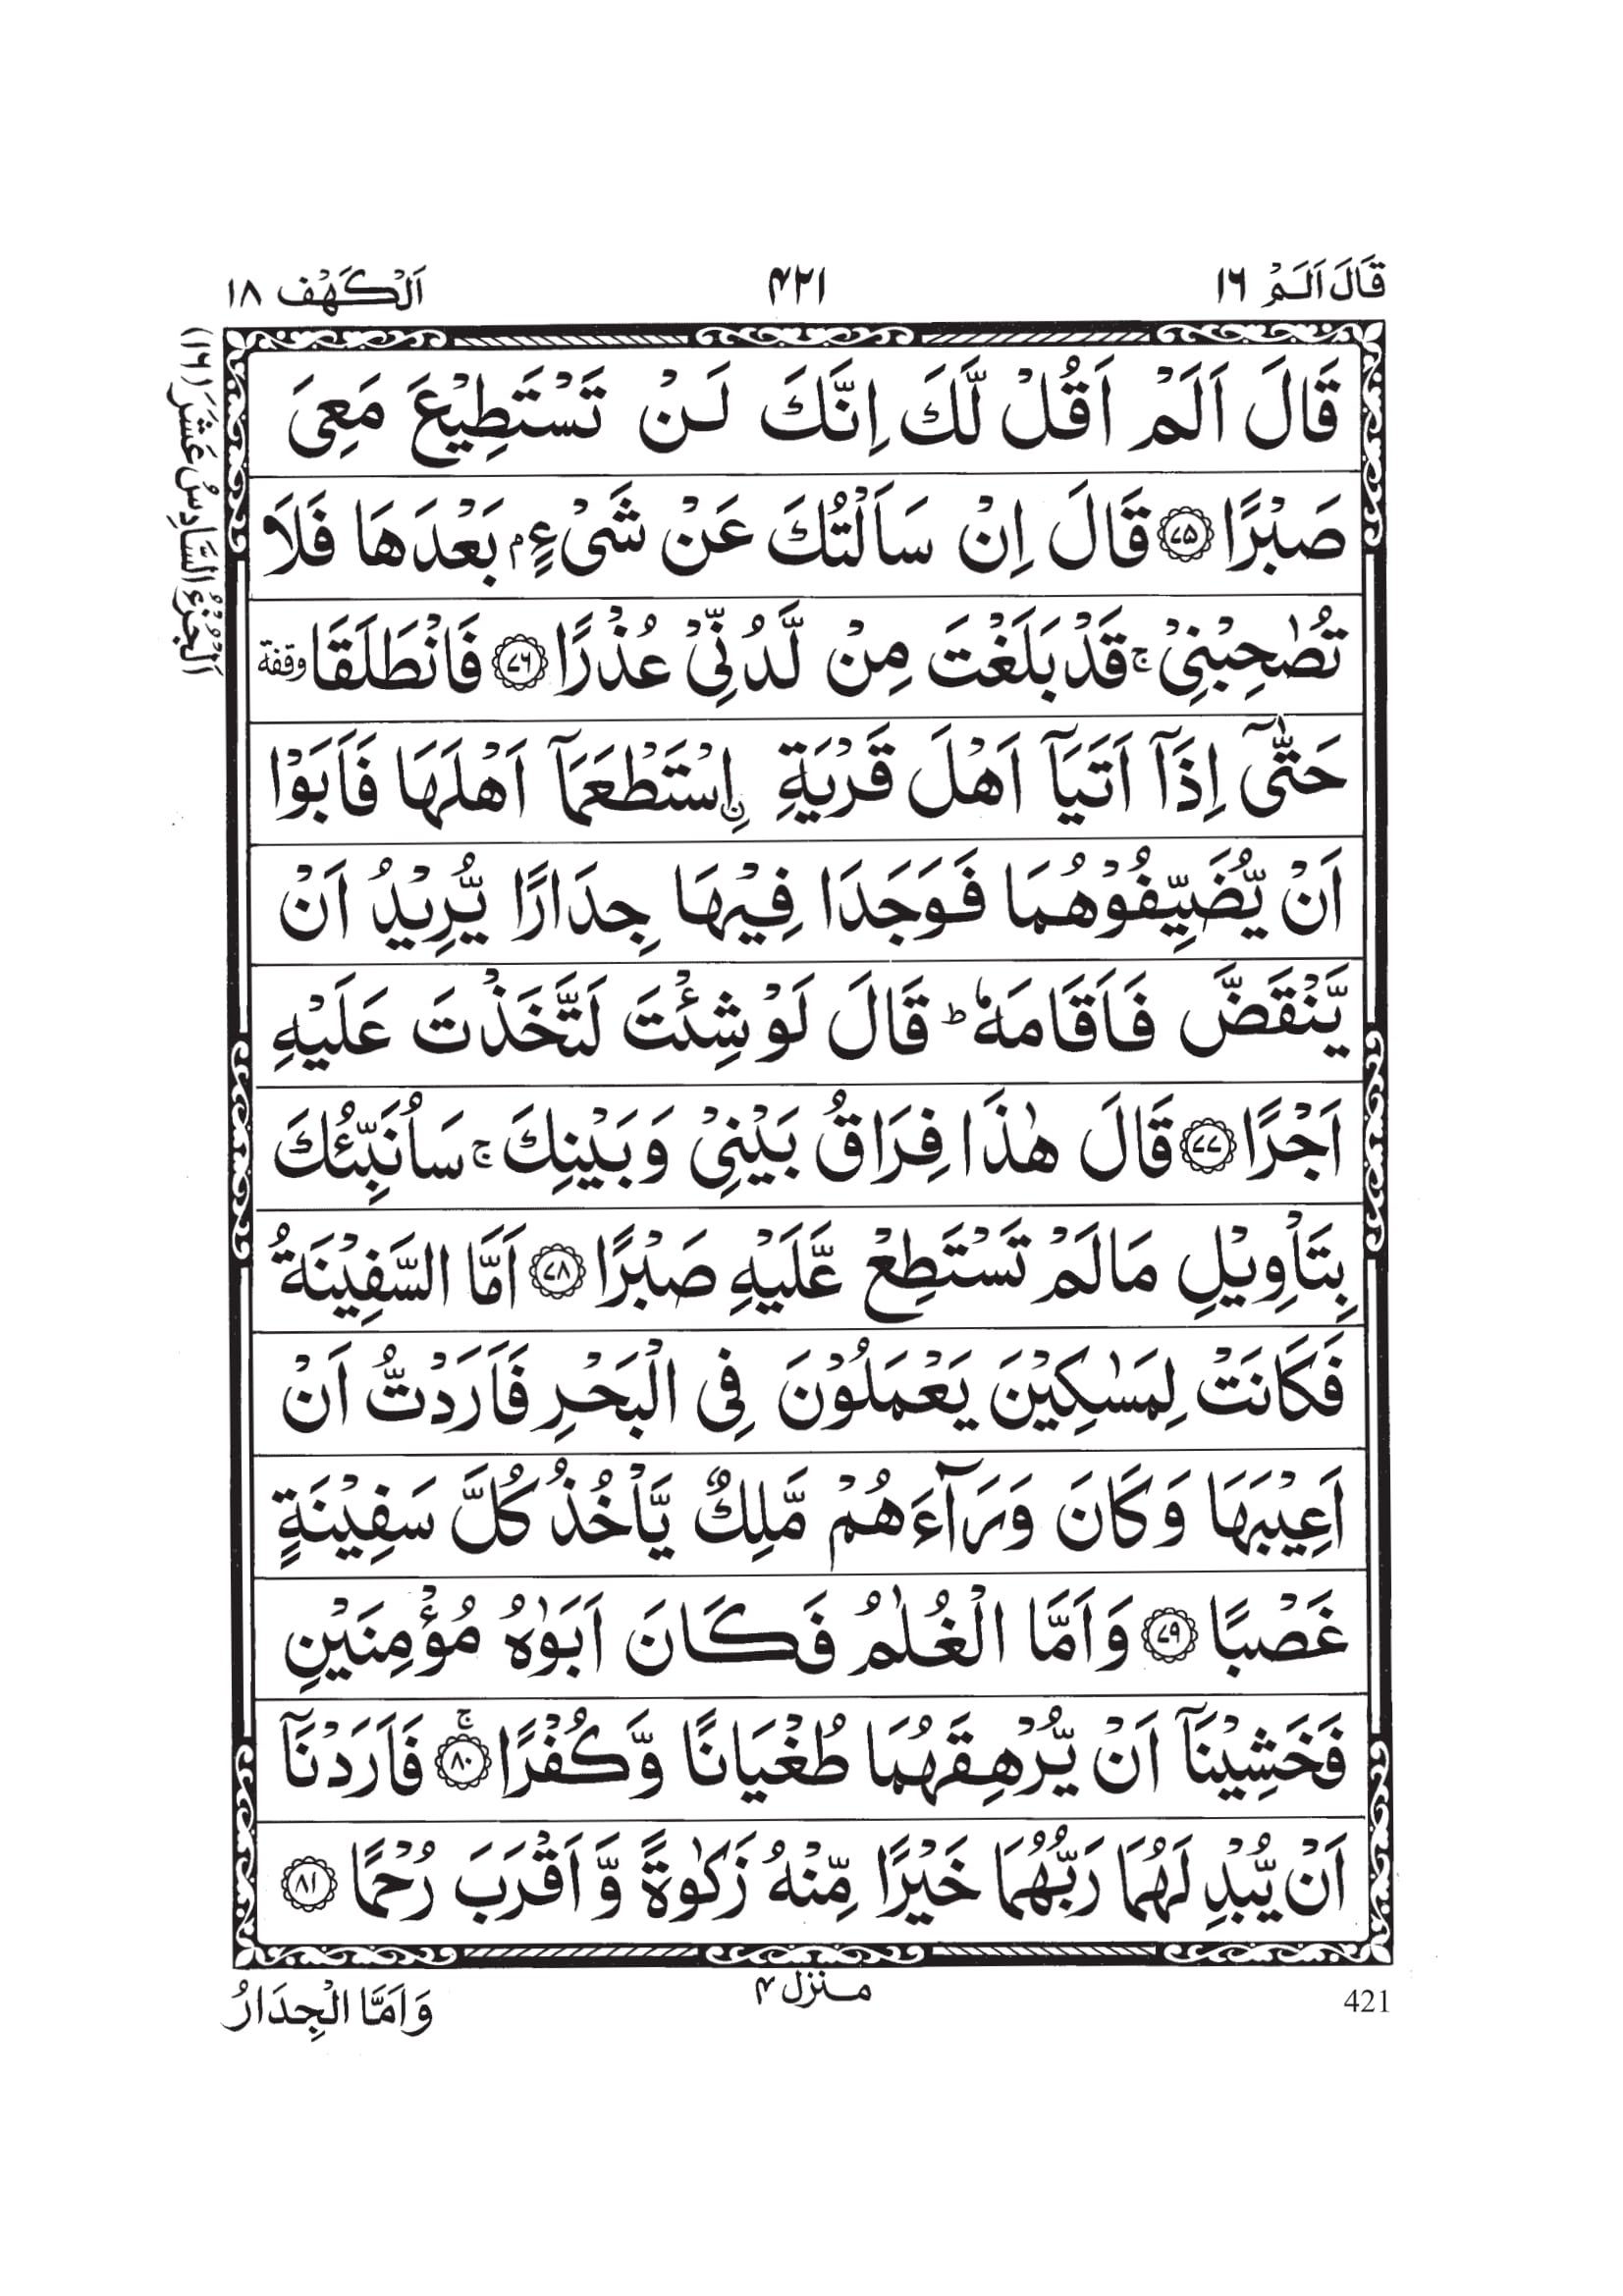 قَالَ اَلَمْ ١٦
٤٢١
اَلْكَهْف ١٨
اَلْجُزْءُ السَّادِسُ عَشَرَ (١٦)
قَالَ اَلَمْ اَقُلْ لَّكَ اِنَّكَ لَنْ تَسْتَطِيْعَ مَعِىَ
صَبْرًا ۝٧٥ قَالَ اِنْ سَاَلْتُكَ عَنْ شَىْءٍۭ بَعْدَهَا فَلَا
تُصٰحِبْنِىْ ۚ قَدْ بَلَغْتَ مِنْ لَّدُنِّىْ عُذْرًا ۝٧٦ فَانْطَلَقَا وقفة
حَتّٰٓى اِذَآ اَتَيَآ اَهْلَ قَرْيَةِ ۨاِسْتَطْعَمَآ اَهْلَهَا فَاَبَوْا
اَنْ يُّضَيِّفُوْهُمَا فَوَجَدَا فِيْهَا جِدَارًا يُّرِيْدُ اَنْ
يَّنْقَضَّ فَاَقَامَهٗ ؕ قَالَ لَوْ شِئْتَ لَتَّخَذْتَ عَلَيْهِ
اَجْرًا ۝٧٧ قَالَ هٰذَا فِرَاقُ بَيْنِىْ وَبَيْنِكَ ۚ سَاُنَبِّئُكَ
بِتَاْوِيْلِ مَا لَمْ تَسْتَطِعْ عَّلَيْهِ صَبْرًا ۝٧٨ اَمَّا السَّفِيْنَةُ
فَكَانَتْ لِمَسٰكِيْنَ يَعْمَلُوْنَ فِى الْبَحْرِ فَاَرَدْتُّ اَنْ
اَعِيْبَهَا وَكَانَ وَرَآءَهُمْ مَّلِكٌ يَّاْخُذُ كُلَّ سَفِيْنَةٍ
غَصْبًا ۝٧٩ وَاَمَّا الْغُلٰمُ فَكَانَ اَبَوٰهُ مُؤْمِنَيْنِ
فَخَشِيْنَآ اَنْ يُّرْهِقَهُمَا طُغْيَانًا وَّكُفْرًا ۚ۝٨٠ فَاَرَدْنَآ
اَنْ يُّبْدِلَهُمَا رَبُّهُمَا خَيْرًا مِّنْهُ زَكٰوةً وَّاَقْرَبَ رُحْمًا ۝٨١
منزل ٤
وَاَمَّا الْجِدَارُ
421